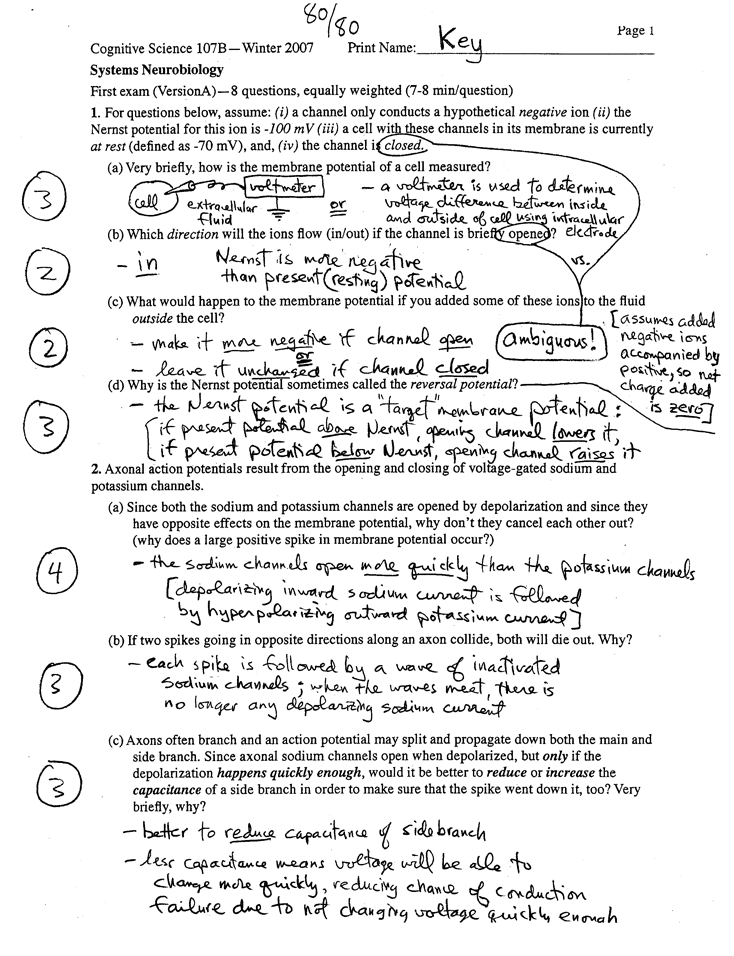 80/80
Page 1
Cognitive Science 107B—Winter 2007 Print Name: Key
Systems Neurobiology
First exam (VersionA)—8 questions, equally weighted (7-8 min/question)
1. For questions below, assume: (i) a channel only conducts a hypothetical negative ion (ii) the
Nernst potential for this ion is -100 mV (iii) a cell with these channels in its membrane is currently
at rest (defined as -70 mV), and, (iv) the channel is closed.
(a) Very briefly, how is the membrane potential of a cell measured?
3
cell voltmeter
extracellular
fluid
or
- a voltmeter is used to determine
voltage difference between inside
and outside of cell using intracellular
electrode
(b) Which direction will the ions flow (in/out) if the channel is briefly opened?
vs.
2
- in Nernst is more negative
than present (resting) potential
(c) What would happen to the membrane potential if you added some of these ions to the fluid
outside the cell?
2
- make it more negative if channel open
or
- leave it unchanged if channel closed
Ambiguous!
[assumes added
negative ions
accompanied by
positive, so net
charge added
is zero]
(d) Why is the Nernst potential sometimes called the reversal potential?
3
- the Nernst potential is a "target" membrane potential:
[if present potential above Nernst, opening channel lowers it,
if present potential below Nernst, opening channel raises it
2. Axonal action potentials result from the opening and closing of voltage-gated sodium and
potassium channels.
(a) Since both the sodium and potassium channels are opened by depolarization and since they
have opposite effects on the membrane potential, why don't they cancel each other out?
(why does a large positive spike in membrane potential occur?)
4
- the sodium channels open more quickly than the potassium channels
[depolarizing inward sodium current is followed
by hyperpolarizing outward potassium current]
(b) If two spikes going in opposite directions along an axon collide, both will die out. Why?
3
- each spike is followed by a wave of inactivated
sodium channels; when the waves meet, there is
no longer any depolarizing sodium current
(c) Axons often branch and an action potential may split and propagate down both the main and
side branch. Since axonal sodium channels open when depolarized, but only if the
depolarization happens quickly enough, would it be better to reduce or increase the
capacitance of a side branch in order to make sure that the spike went down it, too? Very
briefly, why?
3
- better to reduce capacitance of sidebranch
- less capacitance means voltage will be able to
change more quickly, reducing chance of conduction
failure due to not changing voltage quickly enough